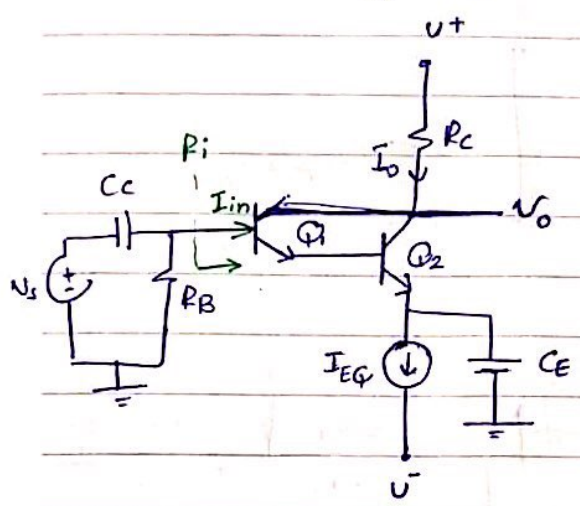 U+
Rc
Io
Ri
Cc
Iin
No
Q1
Q2
Ns
+
-
RB
IEQ
CE
U-